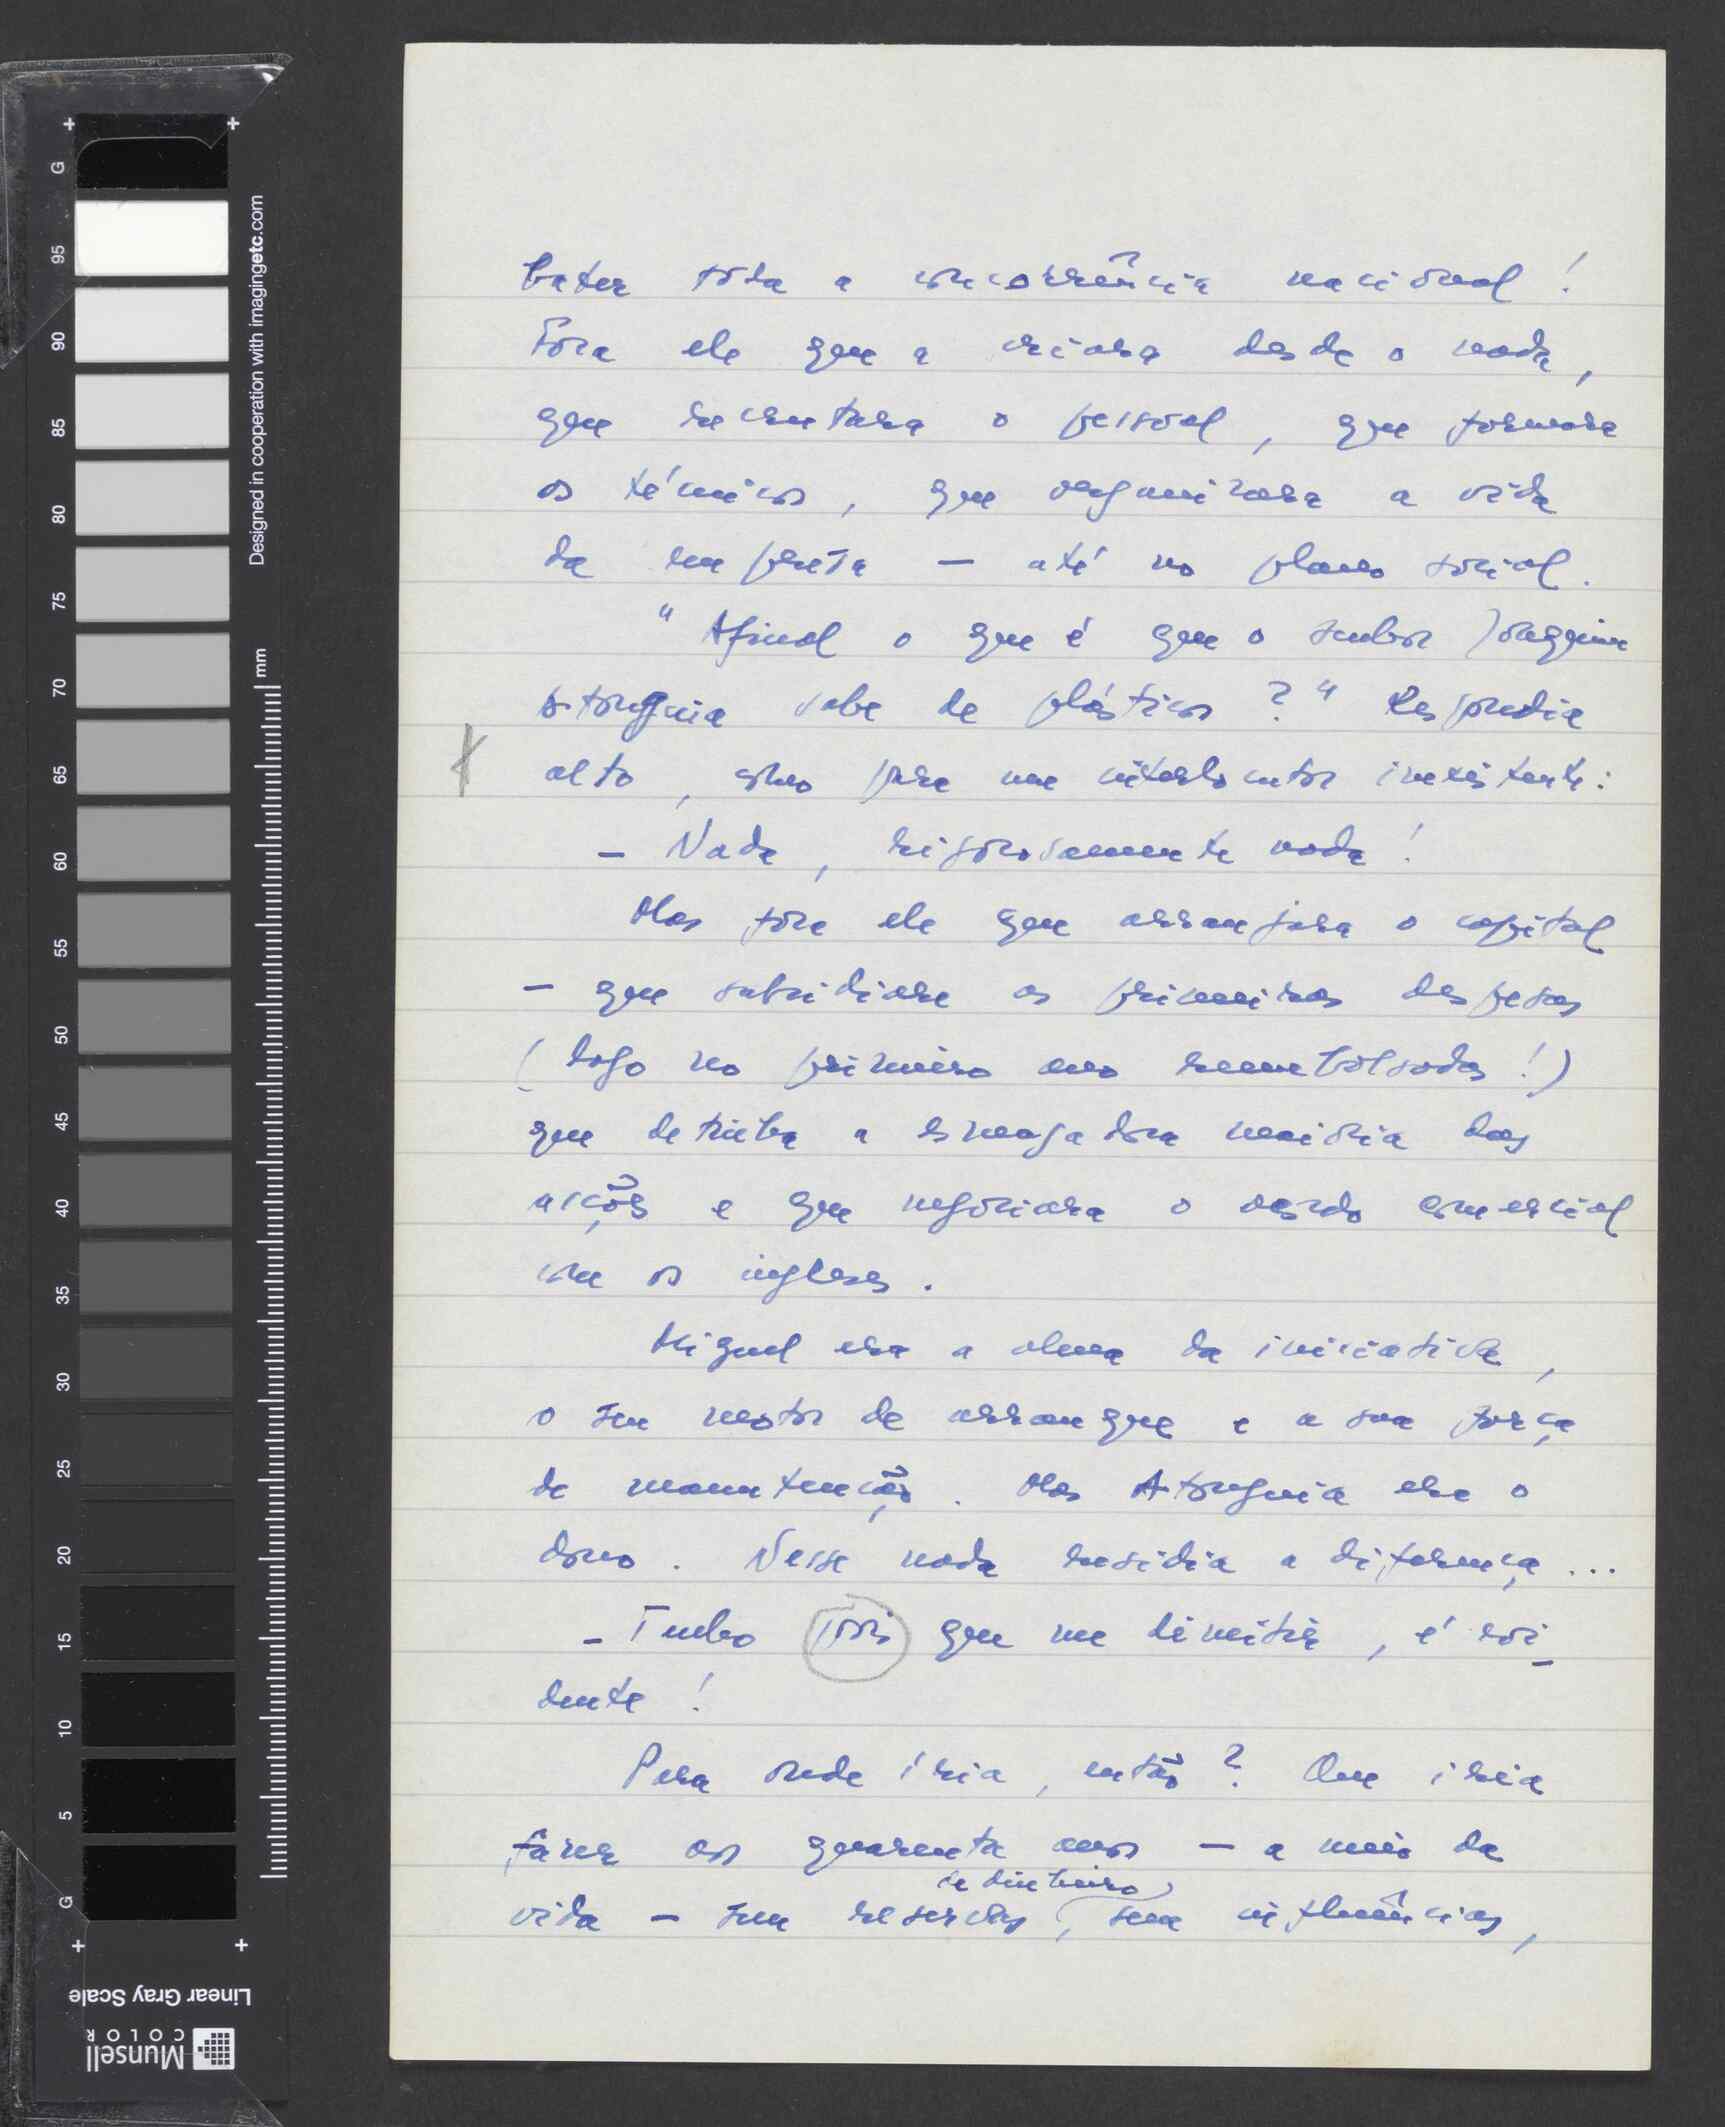 bater tôda a concorrência nacional!
Fôra ele que a criara desde o nada,
que recrutara o pessoal, que formara
os técnicos, que organizara a vida
da emprêsa — até no plano social.
"Afinal o que é que o senhor Joaquim
Atouguia sabe de plásticos?" Respondia
alto, como para um interlocutor inexistente:
— Nada, rigorosamente nada!
Mas fôra ele que arranjara o capital
— que subsidiara as primeiras despesas
(logo no primeiro ano reembolsadas!)
que detinha a esmagadora maioria das
acções e que negociara o acordo comercial
com os ingleses.
Miguel era a alma da iniciativa,
o seu motor de arranque e a sua força
de manutenção. Mas Atouguia era o
dono. Nesse nada residia a diferença...
— Tenho pois que me demitir, é evi-
dente!
Para onde iria, então? Que iria
fazer aos quarenta anos — a meio da
de dinheiro
vida — sem reservas, sem influências,
Designed in cooperation with imagingetc.com
mm
G
95
90
85
80
75
70
65
60
55
50
45
40
35
30
25
20
15
10
5
G
Linear Gray Scale
Munsell
COLOR